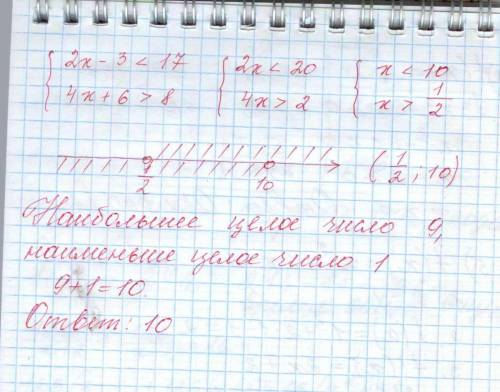 2x - 3 < 17   2x < 20   x < 10
4x + 6 > 8   4x > 2   x > 1/2
1/2   10   (1/2; 10)
Наибольшее целое число 9,
наименьше целое число 1
9+1=10.
Ответ: 10